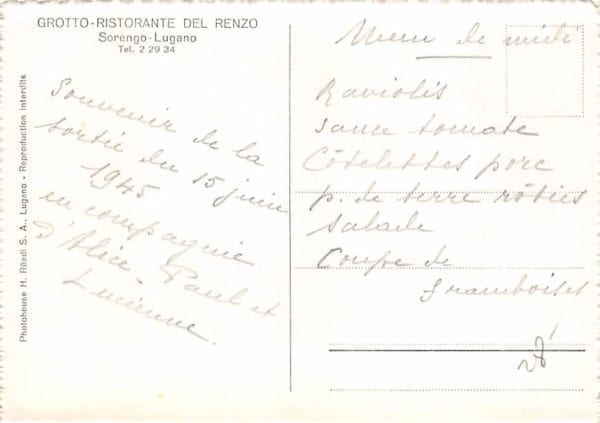 GROTTO-RISTORANTE DEL RENZO
Sorengo-Lugano
Tel. 2 29 34
Souvenir de la
sortie du 15 juin
1945
en compagnie
d'Alice - Paul et
Lucienne.
Photohouse H. Rüedi S. A., Lugano - Reproduction interdite
Menu de midi
Raviolis
sauce tomate
Côtelettes porc
p. de terre rôties
salade
Coupe de
framboises